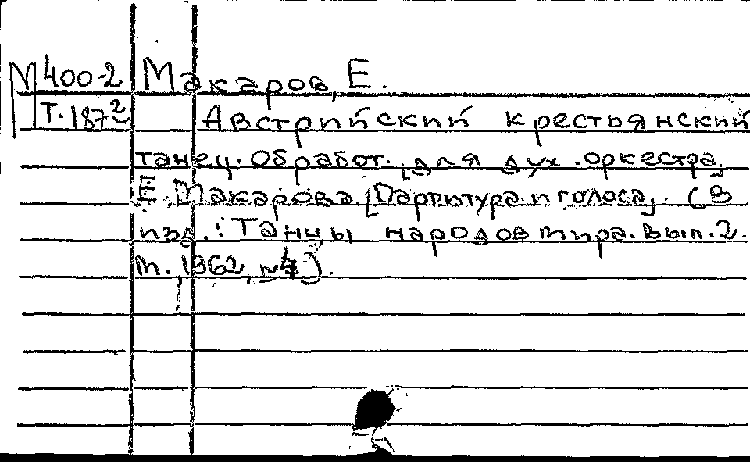 М 400-2 Макаров, Е.
Т.187² Австрийский крестьянский
танец. Обработ. [для дух. оркестра]
Е. Макарова. [Партитура и голоса]. (В
изд.: Танцы народов мира. Вып. 2.
М., 1962, №4).